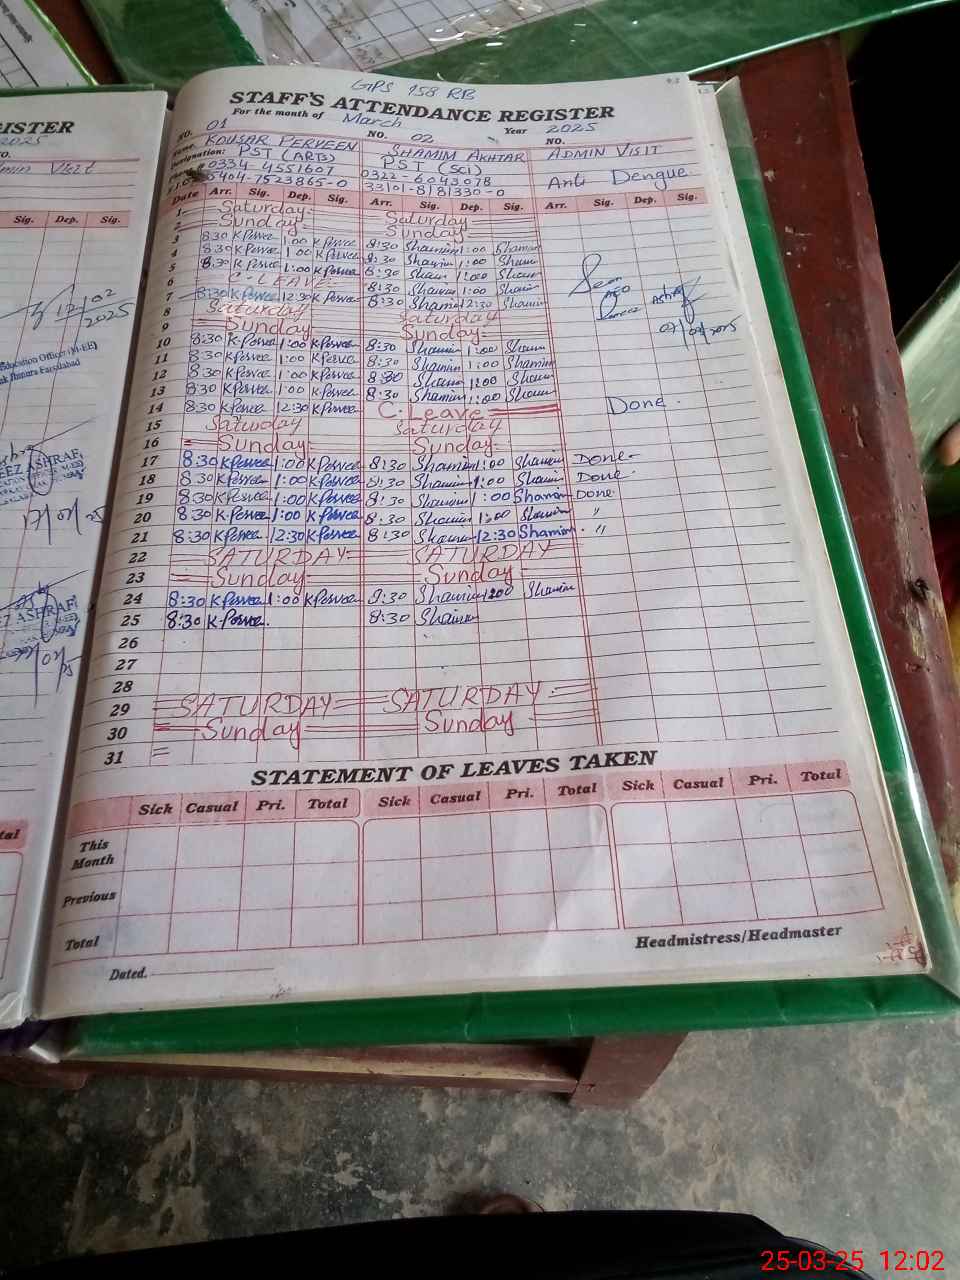 GPS 158 RB
STAFF'S ATTENDANCE REGISTER
For the month of March Year 2025
NO. 01 NO. 02 NO.
Name KOUSAR PERVEEN SHAMIM AKHTAR ADMIN VISIT
Designation: PST (ARTS) PST (Sci)
0334-4551607 0322-6043078 Anti Dengue
5404-7523865-0 33101-8181330-0
Date Arr. Sig. Dep. Sig. Arr. Sig. Dep. Sig. Arr. Sig. Dep. Sig.
1 Saturday Saturday
2 Sunday Sunday
3 8:30 K Pervee 1:00 K Pervee 8:30 Shamim 1:00 Shamim
4 8:30 K Pervee 1:00 K Pervee 8:30 Shamim 1:00 Shamim
5 8:30 K Pervee 1:00 K Pervee 8:30 Shamim 1:00 Shamim
6 C. LEAVE 8:30 Shamim 1:00 Shamim
7 8:30 K Pervee 12:30 K Pervee 8:30 Shamim 12:30 Shamim
8 Saturday Saturday
9 Sunday Sunday
10 8:30 K Pervee 1:00 K Pervee 8:30 Shamim 1:00 Shamim
11 8:30 K Pervee 1:00 K Pervee 8:30 Shamim 1:00 Shamim
12 8:30 K Pervee 1:00 K Pervee 8:30 Shamim 1:00 Shamim
13 8:30 K Pervee 1:00 K Pervee 8:30 Shamim 1:00 Shamim
14 8:30 K Pervee 12:30 K Pervee C. Leave Done.
15 Saturday Saturday
16 Sunday Sunday
17 8:30 K Pervee 1:00 K Pervee 8:30 Shamim 1:00 Shamim Done
18 8:30 K Pervee 1:00 K Pervee 8:30 Shamim 1:00 Shamim Done
19 8:30 K Pervee 1:00 K Pervee 8:30 Shamim 1:00 Shamim Done
20 8:30 K Pervee 1:00 K Pervee 8:30 Shamim 1:00 Shamim "
21 8:30 K Pervee 12:30 K Pervee 8:30 Shamim 12:30 Shamim "
22 SATURDAY SATURDAY
23 Sunday Sunday
24 8:30 K Pervee 1:00 K Pervee 8:30 Shamim 1:00 Shamim
25 8:30 K Pervee 8:30 Shamim
26
27
28
29 SATURDAY SATURDAY
30 Sunday Sunday
31
STATEMENT OF LEAVES TAKEN
Sick Casual Pri. Total Sick Casual Pri. Total Sick Casual Pri. Total
This Month
Previous
Total
Headmistress/Headmaster
Dated.
25-03-25 12:02